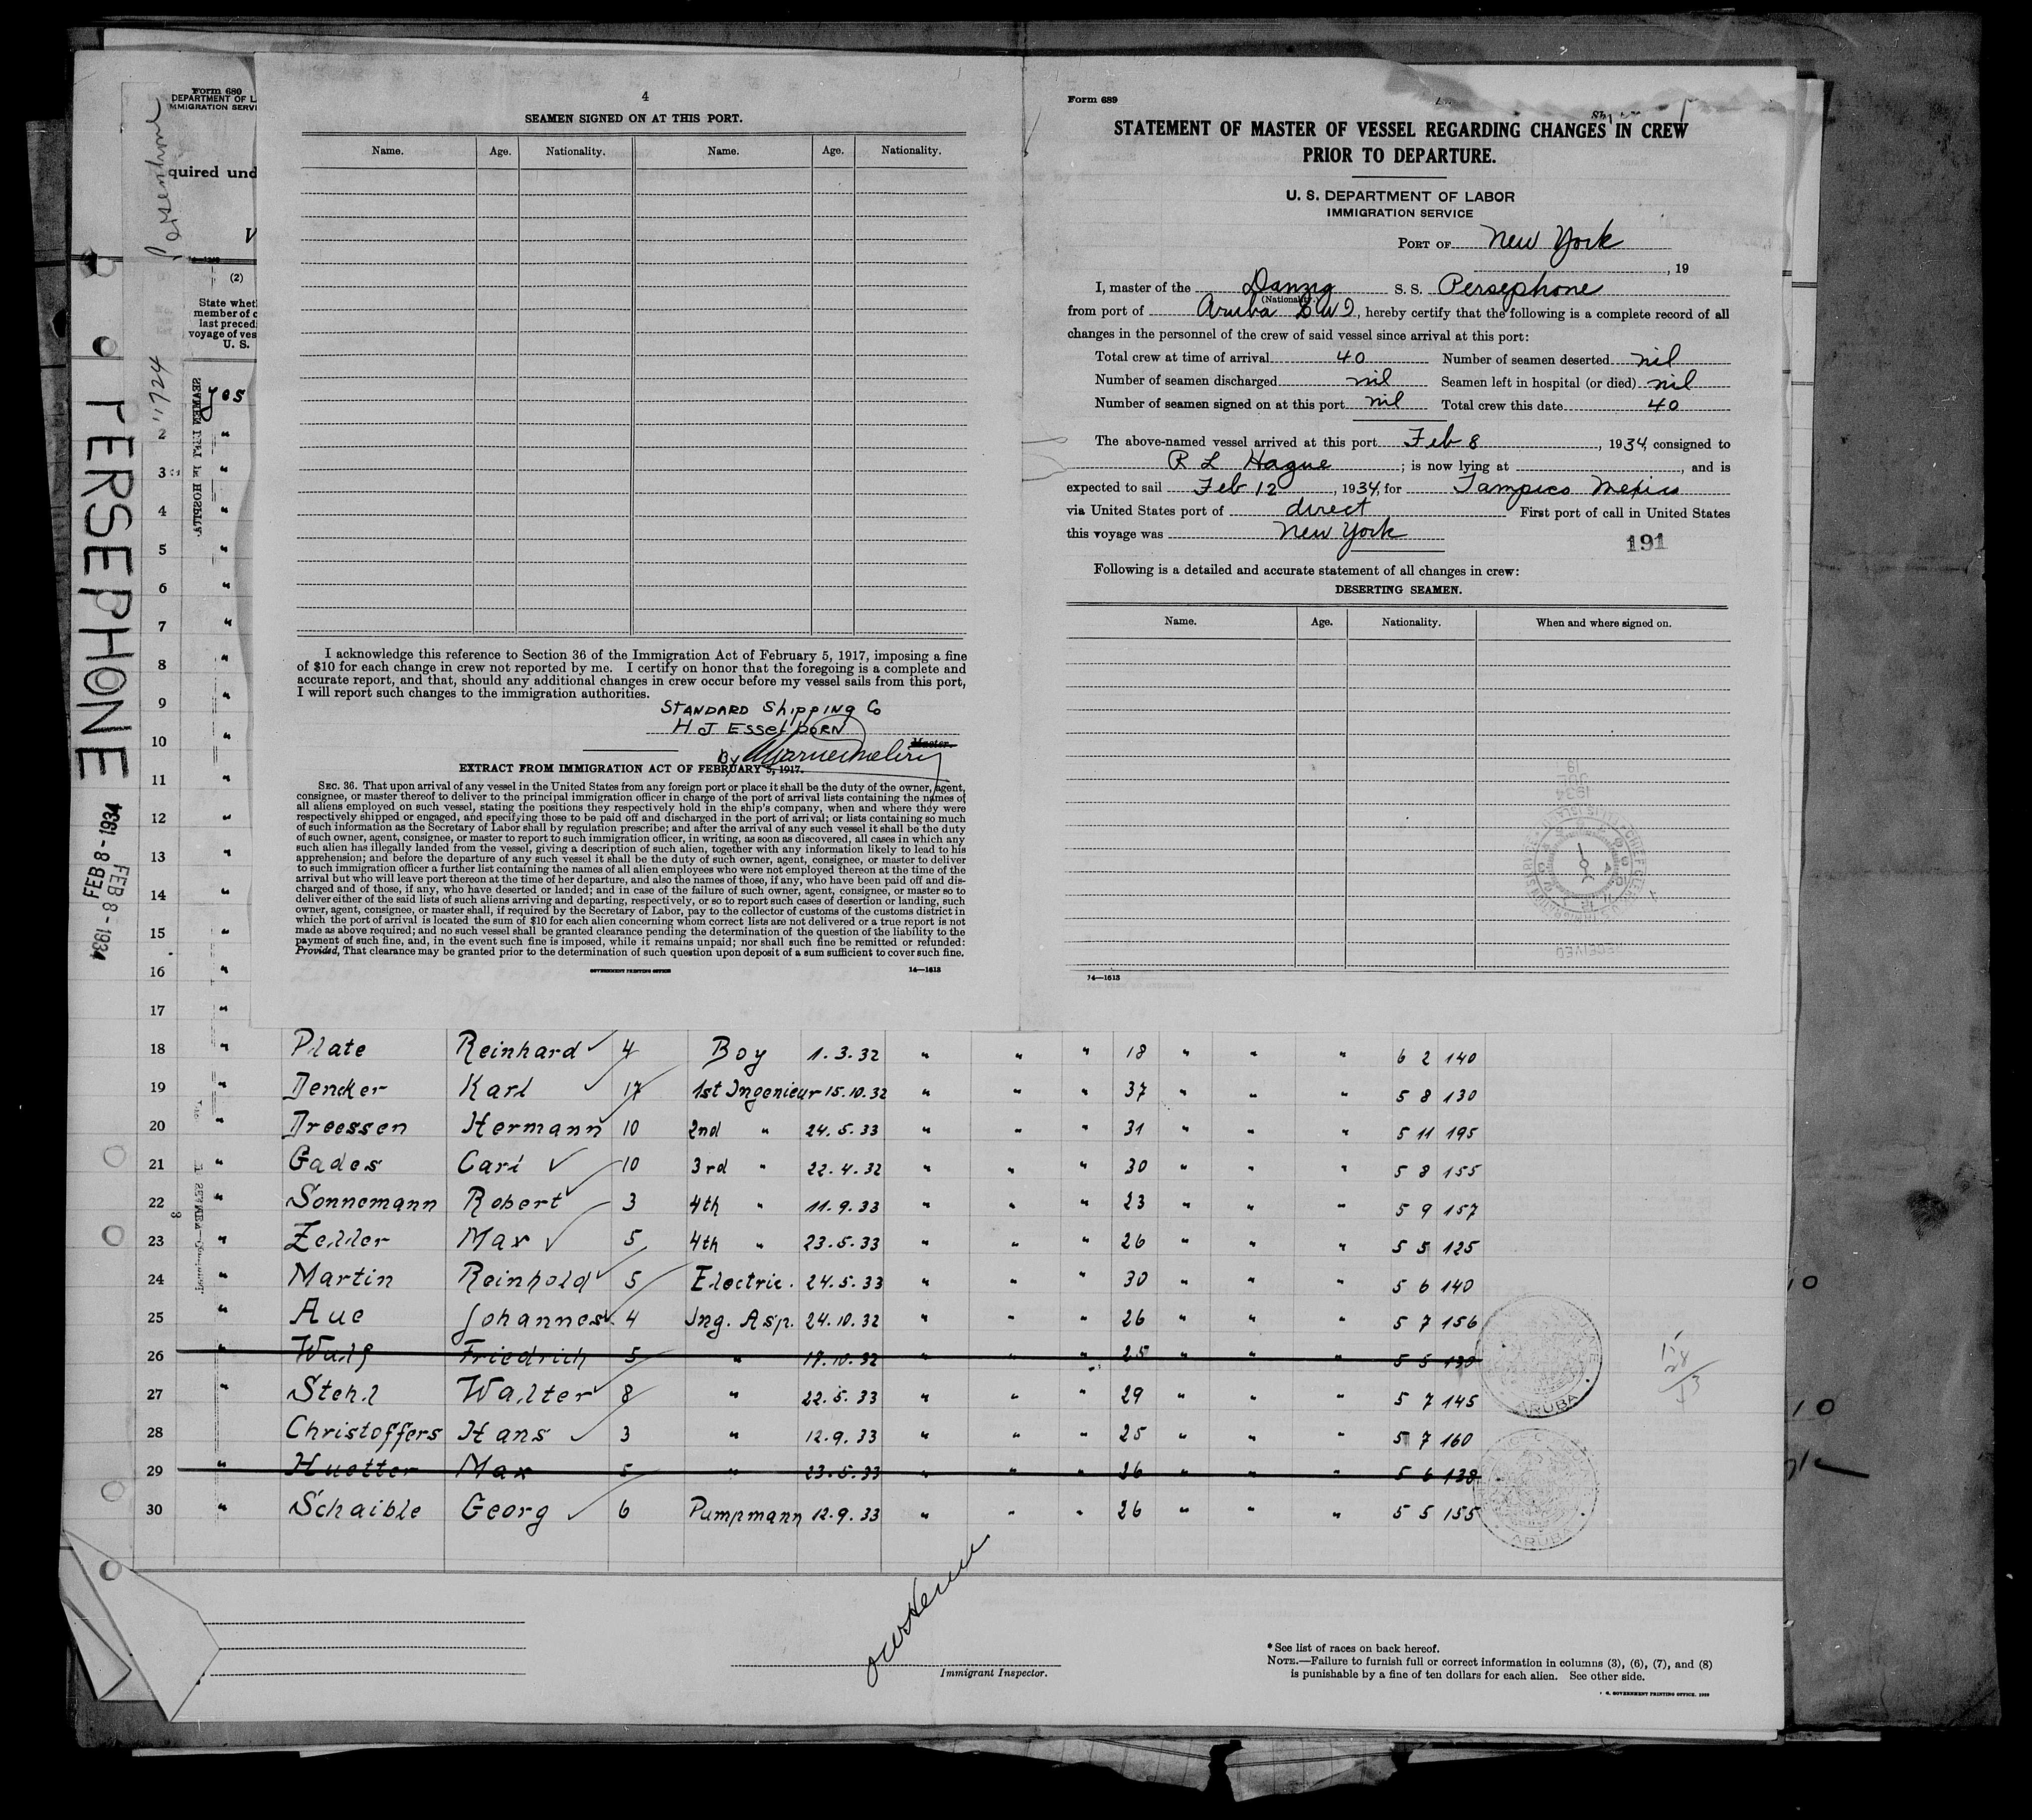 Form 680
DEPARTMENT OF L
MMIGRATION SERVI
Persephone
quired und
V
(2)
State whet
member of c
last preced
voyage of ves
U. S.
PERSEPHONE
FEB 8 - 1934
FEB 8 - 1934
4
SEAMEN SIGNED ON AT THIS PORT.
Name. Age. Nationality. Name. Age. Nationality.
I acknowledge this reference to Section 36 of the Immigration Act of February 5, 1917, imposing a fine
of $10 for each change in crew not reported by me. I certify on honor that the foregoing is a complete and
accurate report, and that, should any additional changes in crew occur before my vessel sails from this port,
I will report such changes to the immigration authorities.
STANDARD Shipping Co
H J Esselborn
Master.
By
EXTRACT FROM IMMIGRATION ACT OF FEBRUARY 5, 1917.
SEC. 36. That upon arrival of any vessel in the United States from any foreign port or place it shall be the duty of the owner, agent,
consignee, or master thereof to deliver to the principal immigration officer in charge of the port of arrival lists containing the names of
all aliens employed on such vessel, stating the positions they respectively hold in the ship's company, when and where they were
respectively shipped or engaged, and specifying those to be paid off and discharged in the port of arrival; or lists containing so much
of such information as the Secretary of Labor shall by regulation prescribe; and after the arrival of any such vessel it shall be the duty
of such owner, agent, consignee, or master to report to such immigration officer, in writing, as soon as discovered, all cases in which any
such alien has illegally landed from the vessel, giving a description of such alien, together with any information likely to lead to his
apprehension; and before the departure of any such vessel it shall be the duty of such owner, agent, consignee, or master to deliver
to such immigration officer a further list containing the names of all alien employees who were not employed thereon at the time of the
arrival but who will leave port thereon at the time of her departure, and also the names of those, if any, who have been paid off and dis-
charged and of those, if any, who have deserted or landed; and in case of the failure of such owner, agent, consignee, or master so to
deliver either of the said lists of such aliens arriving and departing, respectively, or so to report such cases of desertion or landing, such
owner, agent, consignee, or master shall, if required by the Secretary of Labor, pay to the collector of customs of the customs district in
which the port of arrival is located the sum of $10 for each alien concerning whom correct lists are not delivered or a true report is not
made as above required; and no such vessel shall be granted clearance pending the determination of the question of the liability to the
payment of such fine, and, in the event such fine is imposed, while it remains unpaid; nor shall such fine be remitted or refunded:
Provided, That clearance may be granted prior to the determination of such question upon deposit of a sum sufficient to cover such fine.
GOVERNMENT PRINTING OFFICE 14—1613
Form 689
STATEMENT OF MASTER OF VESSEL REGARDING CHANGES IN CREW
PRIOR TO DEPARTURE.
U. S. DEPARTMENT OF LABOR
IMMIGRATION SERVICE
PORT OF New York
, 19
I, master of the Danzig S. S. Persephone
(Nationality)
from port of Aruba D W I, hereby certify that the following is a complete record of all
changes in the personnel of the crew of said vessel since arrival at this port:
Total crew at time of arrival 40 Number of seamen deserted nil
Number of seamen discharged nil Seamen left in hospital (or died) nil
Number of seamen signed on at this port nil Total crew this date 40
The above-named vessel arrived at this port Feb 8, 1934, consigned to
R L Hague; is now lying at , and is
expected to sail Feb 12, 1934, for Tampico Mexico
via United States port of direct First port of call in United States
this voyage was New York
191
Following is a detailed and accurate statement of all changes in crew:
DESERTING SEAMEN.
Name. Age. Nationality. When and where signed on.
14—1613
yes
2 "
3 "
4 "
5 "
6 "
7 "
8 "
9 "
10 "
11 "
12 "
13 "
14 "
15 "
16 "
17 "
18 " Plate Reinhard 4 Boy 1.3.32 " " " 18 " " " 6 2 140
19 " Dencker Karl 17 1st Ingenieur 15.10.32 " " " 37 " " " 5 8 130
20 " Dreessen Hermann 10 2nd " 24.5.33 " " " 31 " " " 5 11 195
21 " Gades Carl 10 3rd " 22.4.32 " " " 30 " " " 5 8 155
22 " Sonnemann Robert 3 4th " 11.9.33 " " " 23 " " " 5 9 157
23 " Zeller Max 5 4th " 23.5.33 " " " 26 " " " 5 5 125
24 " Martin Reinhold 5 Electric. 24.5.33 " " " 30 " " " 5 6 140
25 " Aue Johannes 4 Ing. Asp. 24.10.32 " " " 26 " " " 5 7 156
26 " Wulf Friedrich 5 " 17.10.32 " " " 25 " " " 5 5 130
27 " Stehl Walter 8 " 22.5.33 " " " 29 " " " 5 7 145
28 " Christoffers Hans 3 " 12.9.33 " " " 25 " " " 5 7 160
29 " Huetter Max 5 " 23.5.33 " " " 26 " " " 5 6 138
30 " Schaible Georg 6 Pumpmann 12.9.33 " " " 26 " " " 5 5 155
ARUBA
ARUBA
Immigrant Inspector.
* See list of races on back hereof.
NOTE.—Failure to furnish full or correct information in columns (3), (6), (7), and (8)
is punishable by a fine of ten dollars for each alien. See other side.